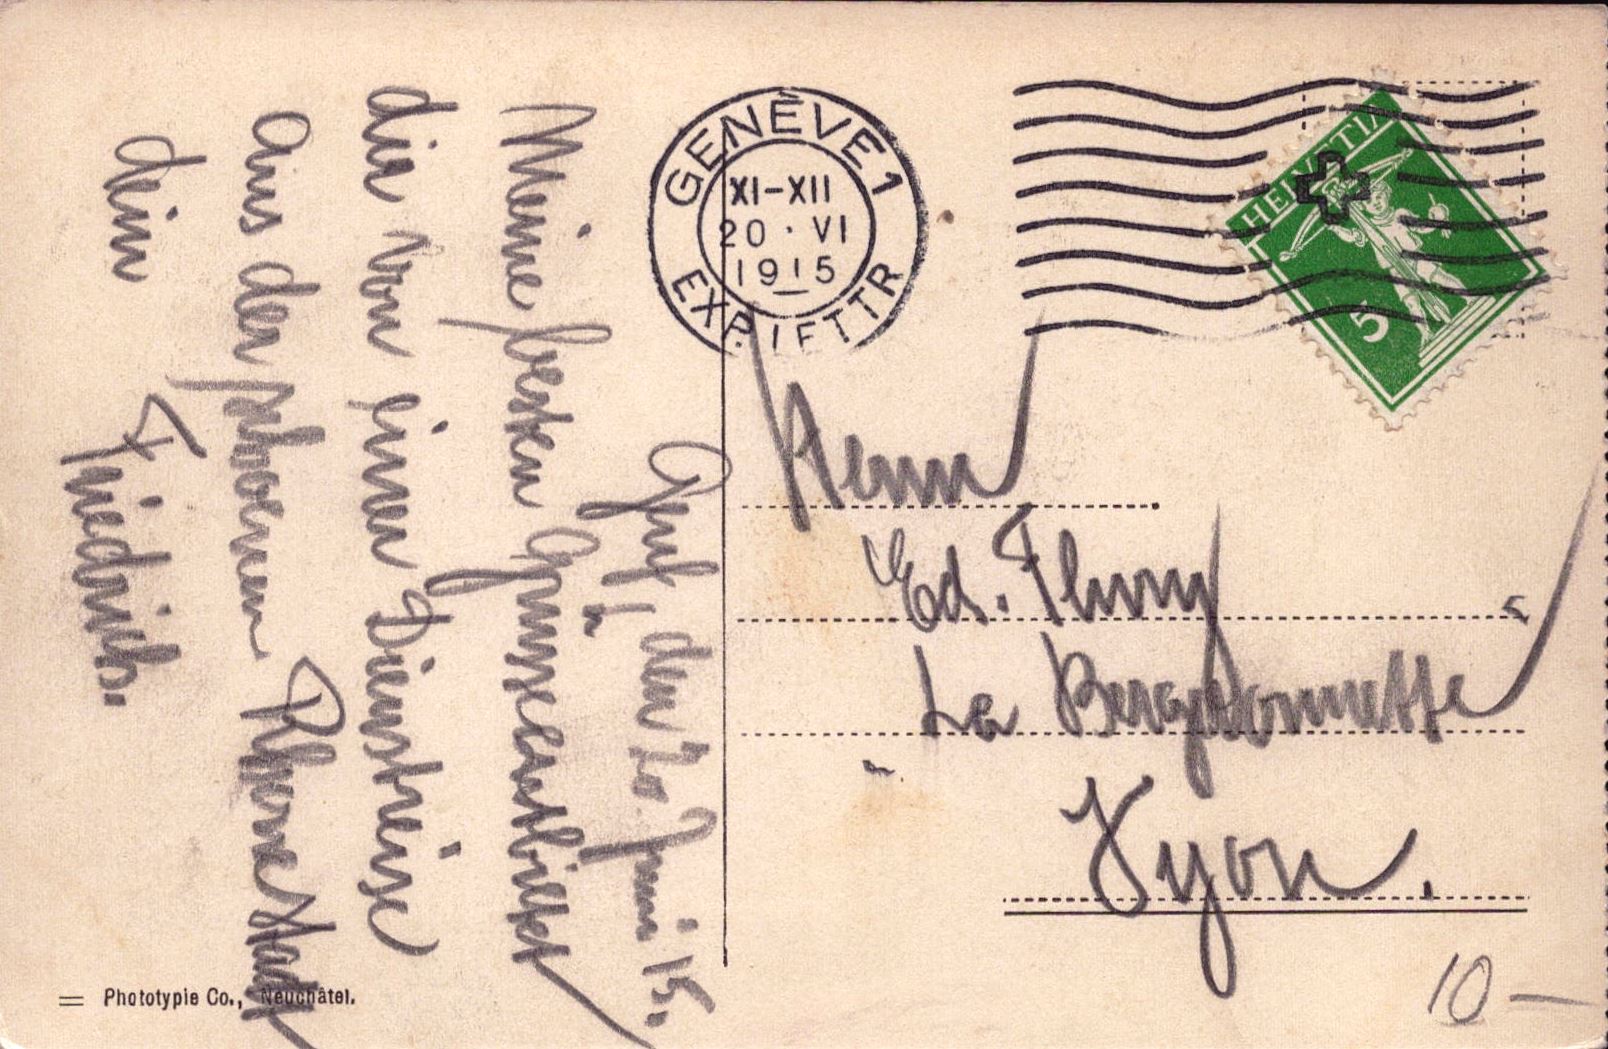 Genf, den 20. Juni 15.
Meine besten Grüsse entbietet
dir von einer Dienstreise
aus der schoenen Rhonestadt
dein
Friedrich.
GENÈVE 1
XI-XII
20 · VI
1915
EXP. LETTR
HELVETIA
5
Herrn
Ed. Flury
La
Nyon.
= Phototypie Co., Neuchâtel.
10 —